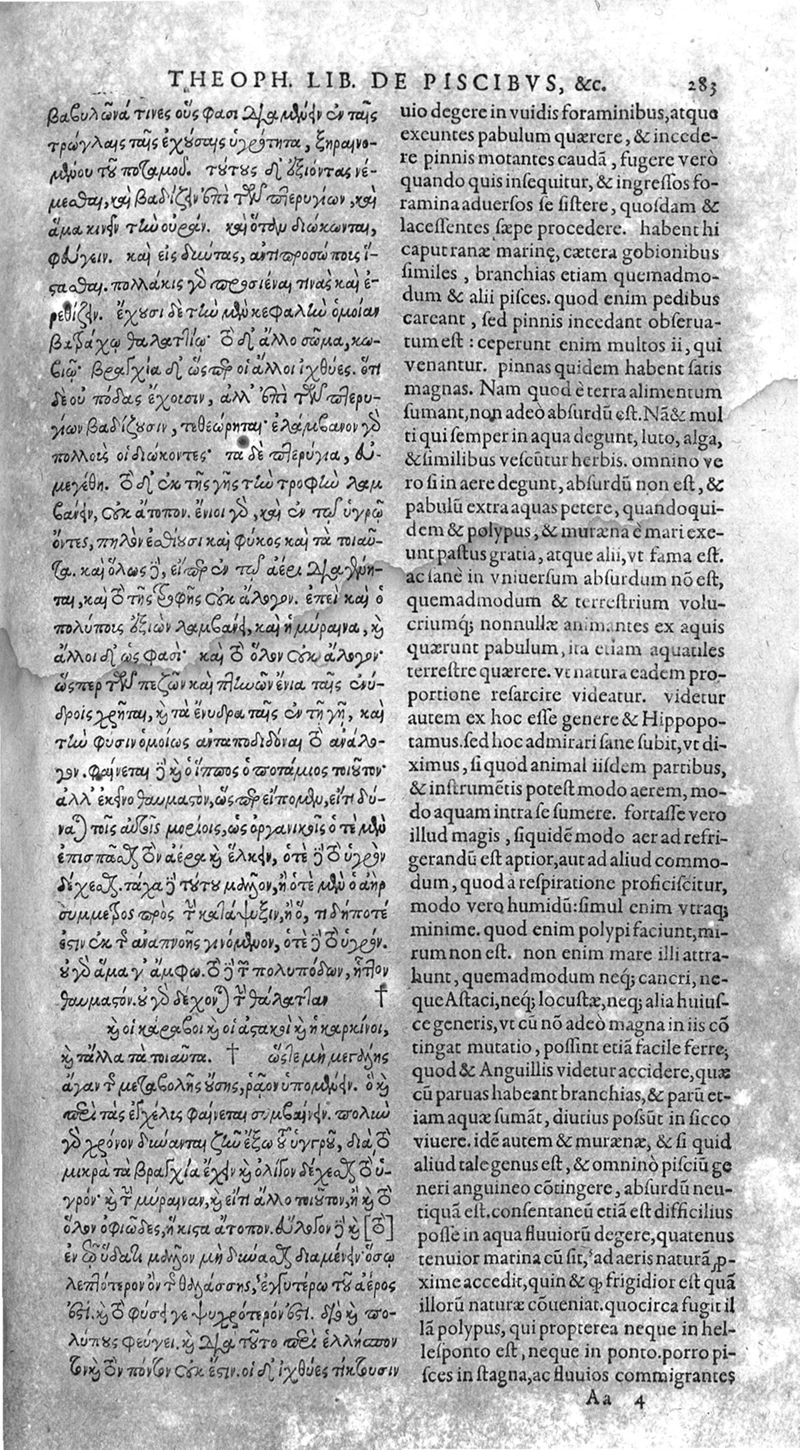 THEOPH. LIB. DE PISCIBVS, &c. 283
βαβυλῶνά τινες οὕς φασι διαμένειν ἐν ταῖς
τρώγλαις ταῖς ἐχούσαις ὑγρότητα, ξηραινο-
μένου τοῦ ποταμοῦ. τούτους δ' ἐξιόντας νέ-
μεσθαι, καὶ βαδίζειν ἐπὶ τῶν πτερυγίων, καὶ
ἅμα κινεῖν τὴν οὐράν. καὶ ὅταν διώκωνται,
φεύγειν. καὶ εἰς δύντας, ἀντιπροσώποις ἵ-
στασθαι. πολλάκις γὰρ προσιέναι τινὰς καὶ ἐ-
ρεθίζειν. ἔχουσι δὲ τὴν μὲν κεφαλὴν ὁμοίαν
βατράχῳ θαλαττίῳ· τὸ δ' ἄλλο σῶμα, κω-
βιῷ· βραγχία δ' ὥσπερ οἱ ἄλλοι ἰχθύες. ὅτι
δὲ οὐ πόδας ἔχοισιν, ἀλλ' ἐπὶ τῶν πτερυ-
γίων βαδίζουσιν, τεθεώρηται· ἐλάμβανον γὰρ
πολλοὺς οἱ διώκοντες· τὰ δὲ πτερύγια, εὐ-
μεγέθη. τὸ δ' ἐκ τῆς γῆς τὴν τροφὴν λαμ
βάνειν, οὐκ ἄτοπον. ἔνιοι γὰρ, καὶ ἐν τῷ ὑγρῷ
ὄντες, πηλὸν ἐσθίουσι καὶ φύκος καὶ τὰ τοιαῦ-
τα. καὶ ὅλως δὲ, εἴπερ ἐν τῷ ἀέρι διαχρῆν-
ται, καὶ τὸ τῆς τροφῆς οὐκ ἄλογον. ἐπεὶ καὶ ὁ
πολύποις ἐξιὼν λαμβάνει, καὶ ἡ μύραινα, καὶ
ἄλλοι δ' ὥς φασι· καὶ τὸ ὅλον οὐκ ἄλογον·
ὥσπερ τῶν πεζῶν καὶ πτηνῶν ἔνια ταῖς ἐνύ-
δροις χρῆται, καὶ τὰ ἔνυδρα ταῖς ἐν τῇ γῇ, καὶ
τὴν φύσιν ὁμοίως ἀνταποδιδόναι τὸ ἀνάλο-
γον. φαίνεται δὲ καὶ ὁ ἵππος ὁ ποτάμιος τοιοῦτον·
ἀλλ' ἐκεῖνο θαυμαστὸν, ὥσπερ εἴπομεν, εἴ τι δύ-
ναται τοῖς αὐτοῖς μορίοις, ὡς ὀργανικοῖς ὁτὲ μὲν
ἐπισπᾶσθαι τὸν ἀέρα καὶ ἕλκειν, ὁτὲ δὲ τὸ ὑγρὸν
δέχεσθαι. τάχα δὲ τούτου μᾶλλον, ἢ ὁτὲ μὲν ὁ ἀὴρ
σύμμετρος πρὸς τὴν κατάψυξιν, ἢ ὅ, τι δήποτέ
ἐστιν ἐκ τῆς ἀναπνοῆς γινόμενον, ὁτὲ δὲ τὸ ὑγρόν.
οὐ γὰρ ἅμα γ' ἄμφω. τὸ δὲ τῶν πολυπόδων, ἧττον
θαυμαστόν. οὐ γὰρ δέχονται τὴν θάλατταν †
καὶ οἱ κάραβοι καὶ οἱ ἀστακοὶ καὶ ἡ καρκίνοι,
καὶ τἄλλα τὰ τοιαῦτα. † ὥστε μὴ μεγάλης
ἄγαν τῆς μεταβολῆς οὔσης, ῥᾷον ὑπομένειν. ὃ καὶ
περὶ τὰς ἐγχέλεις φαίνεται συμβαίνειν. πολὺν
γὰρ χρόνον δύνανται ζῆν ἔξω τοῦ ὑγροῦ, διὰ τὸ
μικρὰ τὰ βραγχία ἔχειν καὶ ὀλίγον δέχεσθαι τὸ ὑ-
γρόν· καὶ τὴν μύραιναν, καὶ εἴ τι ἄλλο τοιοῦτον, ἢ καὶ τὸ
ὅλον ὀφιῶδες, ἥκιστα ἄτοπον. εὔλογον δὲ καὶ [τὸ]
ἐν τῷ ὕδατι μᾶλλον μὴ δύνασθαι διαμένειν· ὅσῳ
λεπτότερον ὂν τῆς θαλάσσης, ἐγγυτέρω τοῦ ἀέρος
ἐστί. καὶ τὸ φύσει γε ψυχρότερόν ἐστι. διὸ καὶ πο-
λύπους φεύγει. καὶ διὰ τοῦτο περὶ ἑλλήσπον
τον καὶ τὸν πόντον οὐκ ἔστιν. οἱ δ' ἰχθύες τίκτουσιν
uio degere in vuidis foraminibus, atque
exeuntes pabulum quærere, & incede-
re pinnis motantes caudã, fugere verò
quando quis insequitur, & ingressos fo-
ramina aduersos se sistere, quosdam &
lacessentes sæpe procedere. habent hi
caput ranæ marinę, cætera gobionibus
similes, branchias etiam quemadmo-
dum & alii pisces. quod enim pedibus
careant, sed pinnis incedant obserua-
tum est : ceperunt enim multos ii, qui
venantur. pinnas quidem habent satis
magnas. Nam quod è terra alimentum
sumant, non adeò absurdũ est. Nã & mul
ti qui semper in aqua degunt, luto, alga,
& similibus vescũtur herbis. omnino ve
ro si in aere degunt, absurdũ non est, &
pabulũ extra aquas petere, quandoqui-
dem & polypus, & muræna è mari exe-
unt pastus gratia, atque alii, vt fama est.
ac sanè in vniuersum absurdum nõ est,
quemadmodum & terrestrium volu-
criumq; nonnullæ animantes ex aquis
quærunt pabulum, ita etiam aquatiles
terrestre quærere. vt natura eadem pro-
portione resarcire videatur. videtur
autem ex hoc esse genere & Hippopo-
tamus. sed hoc admirari sane subit, vt di-
ximus, si quod animal iisdem partibus,
& instrumẽtis potest modo aerem, mo-
do aquam intra se sumere. fortasse vero
illud magis, siquidẽ modo aer ad refri-
gerandũ est aptior, aut ad aliud commo-
dum, quod a respiratione proficiscitur,
modo vero humidũ: simul enim vtraq;
minime. quod enim polypi faciunt, mi-
rum non est. non enim mare illi attra-
hunt, quemadmodum neq; cancri, ne-
que Astaci, neq; locustæ, neq; alia huius-
ce generis, vt cũ nõ adeò magna in iis cõ
tingat mutatio, possint etiã facile ferre;
quod & Anguillis videtur accidere, quæ
cũ paruas habeant branchias, & parũ et-
iam aquæ sumãt, diutius possũt in sicco
viuere. idẽ autem & murænæ, & si quid
aliud tale genus est, & omninò pisciũ ge
neri anguineo cõtingere, absurdũ neu-
tiquã est. consentaneũ etiã est difficilius
posse in aqua fluuiorũ degere, quatenus
tenuior marina cũ sit, ad aeris naturã ꝓ-
xime accedit, quin & ꝙ frigidior est quã
illorũ naturæ cõueniat. quocirca fugit il
lã polypus, qui propterea neque in hel-
lesponto est, neque in ponto. porro pi-
sces in stagna, ac fluuios commigrantes
Aa 4